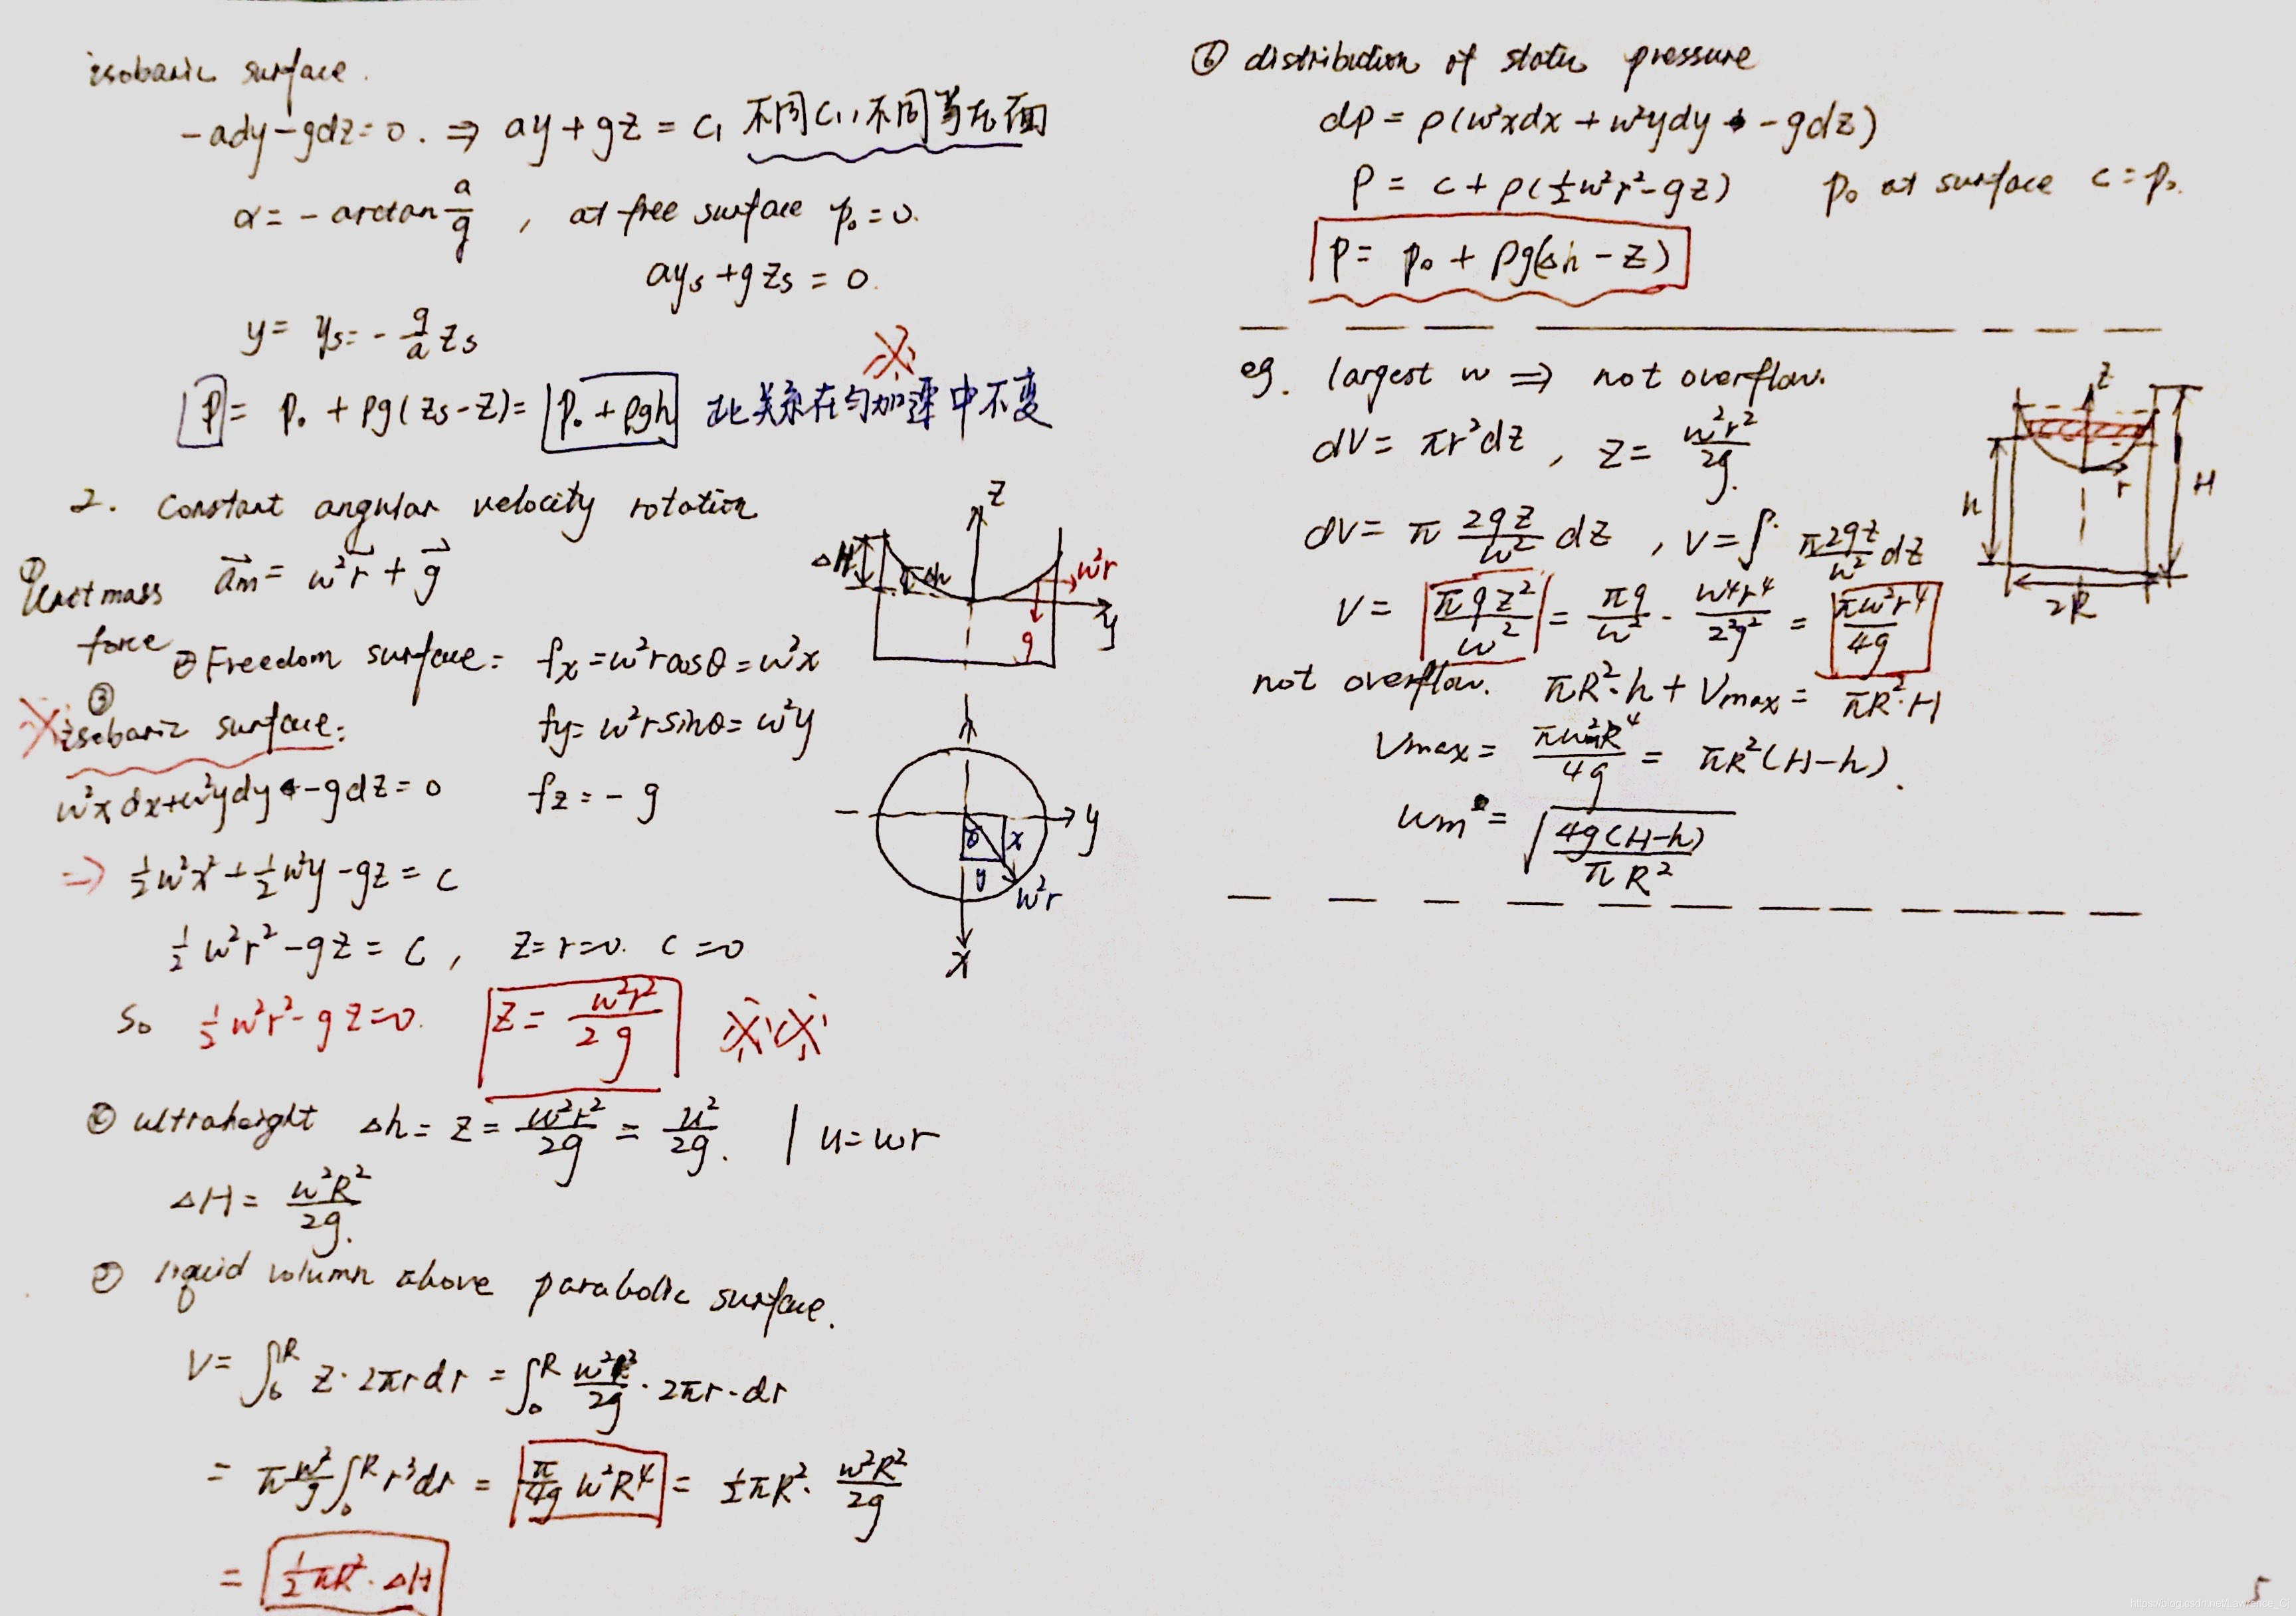 isobaric surface.
-ady-gdz=0. ⇒ ay+gz = c₁ 不同c₁,不同等压面
α = -arctan a/g , at free surface p₀=0.
ays+gzs = 0.
y = ys = - g/a zs
※
p = p₀ + ρg(zs-z) = p₀+ρgh 此关系在匀加速中不变
2. Constant angular velocity rotation
① Unit mass force a⃗m = w²r⃗ + g⃗
② Freedom surface: fx = w²rcosθ = w²x
fy = w²rsinθ = w²y
fz = - g
※ ③ isobaric surface:
w²xdx+w²ydy-gdz=0
⇒ ½w²x²+½w²y-gz = c
½w²r²-gz = c , z=r=0. c=0
So ½w²r²-gz=0. z = w²r²/2g ※※
ΔH Δh z w²r g y
y θ x y w²r x
④ ultraheight Δh = z = w²r²/2g = u²/2g. | u=wr
ΔH = w²R²/2g.
⑤ liquid volumn above parabolic surface.
V = ∫₀ᴿ z·2πrdr = ∫₀ᴿ w²r²/2g · 2πr·dr
= π w²/g ∫₀ᴿ r³dr = π/4g w²R⁴ = ½πR²· w²R²/2g
= ½πR²·ΔH
⑥ distribution of static pressure
dp = ρ(w²xdx + w²ydy -gdz)
p = c + ρ(½w²r²-gz) p₀ at surface c=p₀.
p = p₀ + ρg(Δh-z)
eg. largest w ⇒ not overflow.
dV = πr²dz , z = w²r²/2g.
dV = π 2gz/w² dz , V=∫ π2gz/w² dz
V = πgz²/w² = πg/w² · w⁴r⁴/2²g² = πw²r⁴/4g
z r h H 2R
not overflow. πR²·h + Vmax = πR²·H
Vmax = πw²R⁴/4g = πR²(H-h).
wm = √4g(H-h)/πR²
5